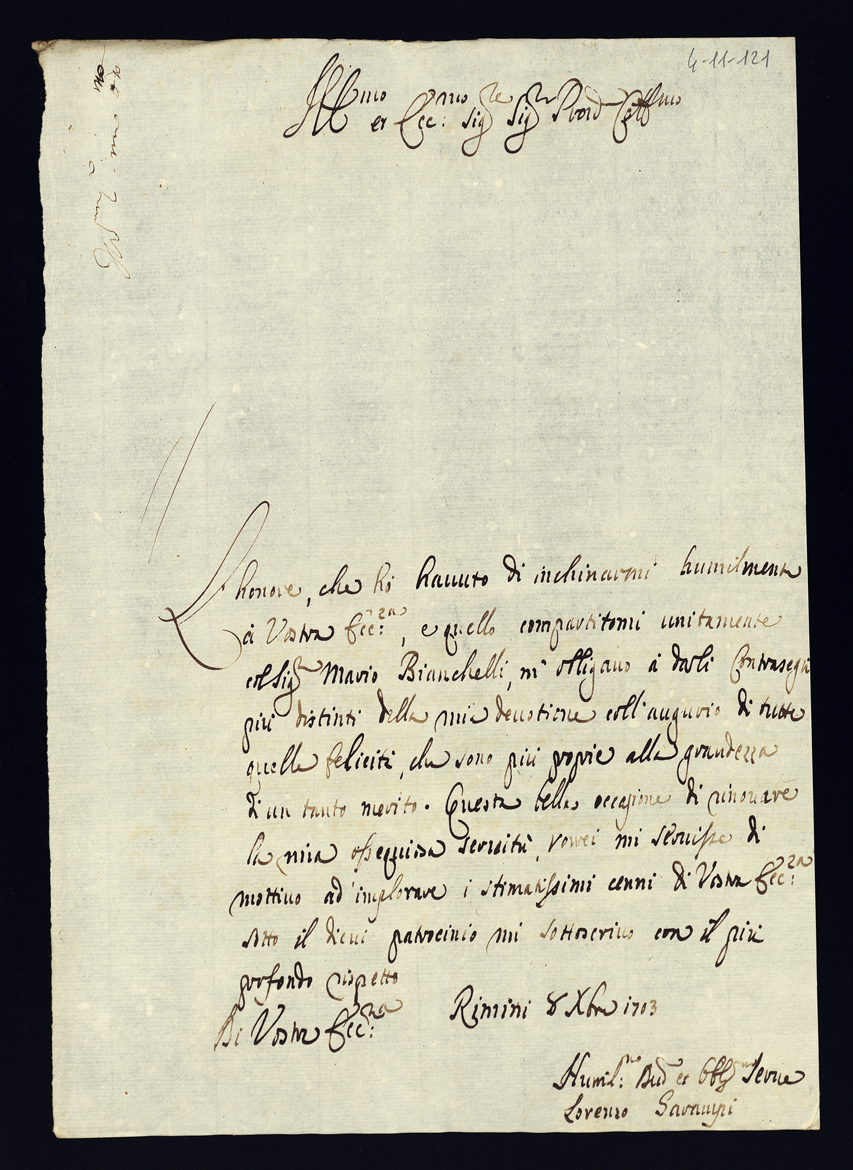 4-11-121
Ill.mo et Ecc:mo Sig.re Sig.r P'ron Coll.mo
L'honore, che hò hauuto di inchinarmi humilmente
à Vostra Ecc:za, e quello compartitomi unitamente
col Sig.r Mario Bianchelli, m'obligano à darli Contrasegni
più distinti della mia deuotione coll'augurio di tutte
quelle felicità, che sono più proprie alla grandezza
d'un tanto merito. Questa bella occasione di rinouare
la mia ossequiosa seruitù, vorrei mi seruisse di
mottiuo ad'implorare i stimatissimi cenni di Vostra Ecc:za
sotto il di cui patrocinio mi sottoscriuo con il più
profondo rispetto
Di Vostra Ecc:za Rimini 8 Xbre 1703
Humil:mo Diu.o et Obblg.mo Serue
Lorenzo Garampi